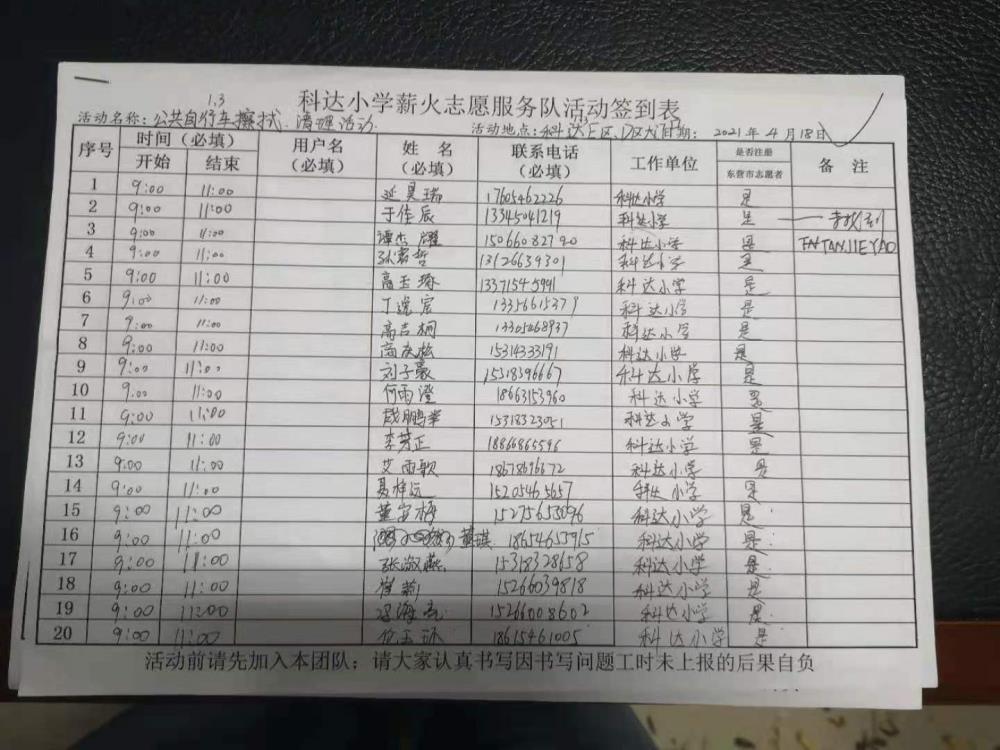 科达小学薪火志愿服务队活动签到表
1.3
活动名称：公共自行车擦拭、清理活动 活动地点：科达E区、D区 日期：2021年4月18日
序号 时间（必填） 用户名（必填） 姓名（必填） 联系电话（必填） 工作单位 是否注册东营市志愿者 备注
开始 结束
1 9:00 11:00 延昊瑞 17605462226 科达小学 是
2 9:00 11:00 于佳辰 13345041219 科达小学 是
3 9:00 11:00 谭杰耀 15066082790 科达小学 是 TANJIEYAO
4 9:00 11:00 张君哲 13126639301 科达小学 是
5 9:00 11:00 高玉琢 13371545941 科达小学 是
6 9:00 11:00 丁逸宸 13356615379 科达小学 是
7 9:00 11:00 高吉桐 13305468937 科达小学 是
8 9:00 11:00 商庆松 15314333191 科达小学 是
9 9:00 11:00 刘子豪 15318396667 科达小学 是
10 9:00 11:00 何雨澄 18663153960 科达小学 是
11 9:00 11:00 成鹏举 15318323051 科达小学 是
12 9:00 11:00 李芳正 18866865596 科达小学 是
13 9:00 11:00 艾雨歌 18678696672 科达小学 是
14 9:00 11:00 聂梓远 15205465657 科达小学 是
15 9:00 11:00 董安梅 15275653096 科达小学 是
16 9:00 11:00 董琪 18654653915 科达小学 是
17 9:00 11:00 张淑燕 15318328658 科达小学 是
18 9:00 11:00 崔莉 15266039818 科达小学 是
19 9:00 11:00 15266008602 科达小学 是
20 9:00 11:00 18615461005 科达小学 是
活动前请先加入本团队：请大家认真书写因书写问题工时未上报的后果自负